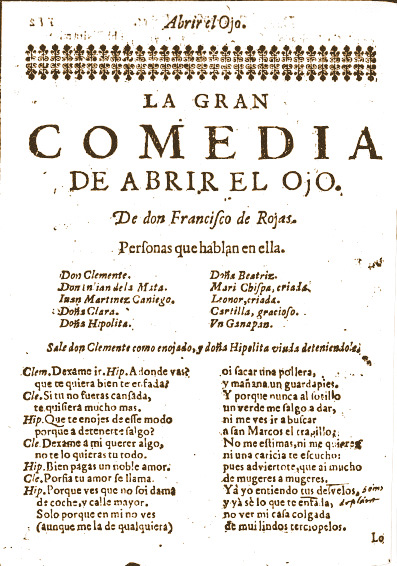 Abrir el Ojo.
LA GRAN
COMEDIA
DE ABRIR EL OJO.
De don Francisco de Rojas.
Personas que hablan en ella.
Don Clemente.
Don Iulian de la Mata.
Iuan Martinez Caniego.
Doña Clara.
Doña Hipolita.
Doña Beatriz.
Mari Chispa, criada.
Leonor, criada.
Cartilla, gracioso.
Vn Ganapan.
Sale don Clemente como enojado, y doña Hipolita viuda deteniendole.
Clem. Dexame ir. Hip. Adonde vas?
que te quiera bien te enfada?
Cle. Si tu no fueras cansada,
te quisiera mucho mas.
Hip. Que te enojes de esse modo
porque a detenerte salgo?
Cle. Dexame a mi querer algo,
no te lo quieras tu todo.
Hip. Bien pagas un noble amor.
Cle. Porfia tu amor se llama.
Hip. Porque ves que no soi dama
de coche, y calle mayor.
Solo porque en mi no ves
(aunque me la de qualquiera)
oi sacar una pollera,
y mañana un guardapies.
Y porque nunca al sotillo
un verde me salgo a dar,
ni me ves ir a buscar
a san Marcos el trapillo:
No me estimas, ni me quieres
ni una caricia te escucho:
pues adviertote, que ai mucho
de mugeres a mugeres.
Ya yo entiendo tus desvelos,
y ya sè lo que te enfada,
no ver mi casa colgada
de mui lindos terciopelos.
Lo